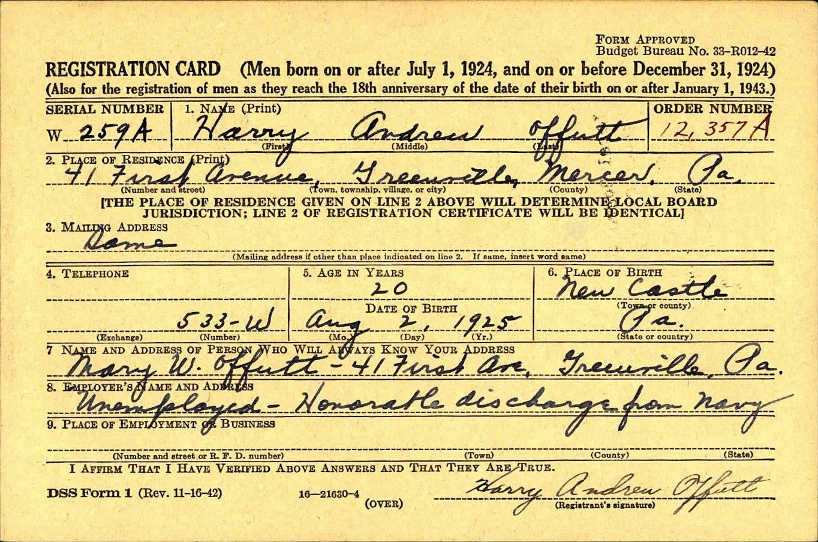 FORM APPROVED
Budget Bureau No. 33-R012-42
REGISTRATION CARD (Men born on or after July 1, 1924, and on or before December 31, 1924)
(Also for the registration of men as they reach the 18th anniversary of the date of their birth on or after January 1, 1943.)
SERIAL NUMBER 1. NAME (Print) ORDER NUMBER
W 259A Harry Andrew Offutt 12,357A
(First) (Middle) (Last)
2. PLACE OF RESIDENCE (Print)
41 First Avenue, Greenville, Mercer, Pa.
(Number and street) (Town, township, village, or city) (County) (State)
[THE PLACE OF RESIDENCE GIVEN ON LINE 2 ABOVE WILL DETERMINE LOCAL BOARD
JURISDICTION; LINE 2 OF REGISTRATION CERTIFICATE WILL BE IDENTICAL]
3. MAILING ADDRESS
Same
(Mailing address if other than place indicated on line 2. If same, insert word same)
4. TELEPHONE 5. AGE IN YEARS 6. PLACE OF BIRTH
20 New Castle
DATE OF BIRTH (Town or county)
533-W Aug 2, 1925 Pa.
(Exchange) (Number) (Mo.) (Day) (Yr.) (State or country)
7 NAME AND ADDRESS OF PERSON WHO WILL ALWAYS KNOW YOUR ADDRESS
Mary W. Offutt - 41 First Ave, Greenville, Pa.
8. EMPLOYER'S NAME AND ADDRESS
Unemployed - Honorable discharge from Navy
9. PLACE OF EMPLOYMENT OR BUSINESS
(Number and street or R. F. D. number) (Town) (County) (State)
I AFFIRM THAT I HAVE VERIFIED ABOVE ANSWERS AND THAT THEY ARE TRUE.
DSS Form 1 (Rev. 11-16-42) 16-21630-4 Harry Andrew Offutt
(OVER) (Registrant's signature)